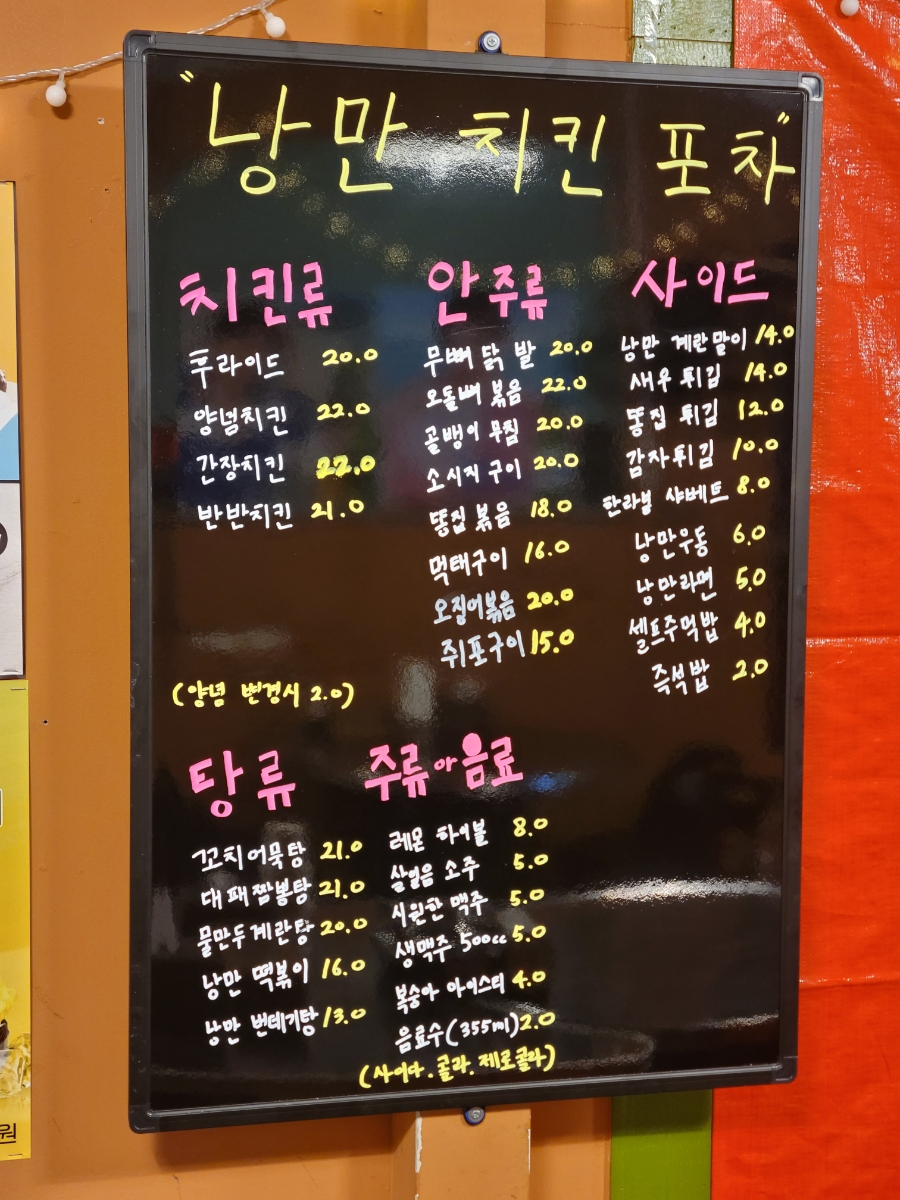 "낭만 치킨 포차"
치킨류
후라이드 20.0
양념치킨 22.0
간장치킨 22.0
반반치킨 21.0
(양념 변경시 2.0)
안주류
무뼈 닭발 20.0
오돌뼈 볶음 22.0
골뱅이 무침 20.0
소시지 구이 20.0
똥집 볶음 18.0
먹태구이 16.0
오징어볶음 20.0
쥐포구이 15.0
사이드
낭만 계란말이 14.0
새우 튀김 14.0
똥집 튀김 12.0
감자튀김 10.0
한라봉 샤베트 8.0
낭만우동 6.0
낭만라면 5.0
셀프주먹밥 4.0
즉석밥 2.0
탕류
꼬치어묵탕 21.0
대패짬뽕탕 21.0
물만두계란탕 20.0
낭만 떡볶이 16.0
낭만 번데기탕 13.0
주류 아 음료
레몬 하이볼 8.0
살얼음 소주 5.0
시원한 맥주 5.0
생맥주 500cc 5.0
복숭아 아이스티 4.0
음료수(355ml) 2.0
(사이다. 콜라. 제로콜라)
원